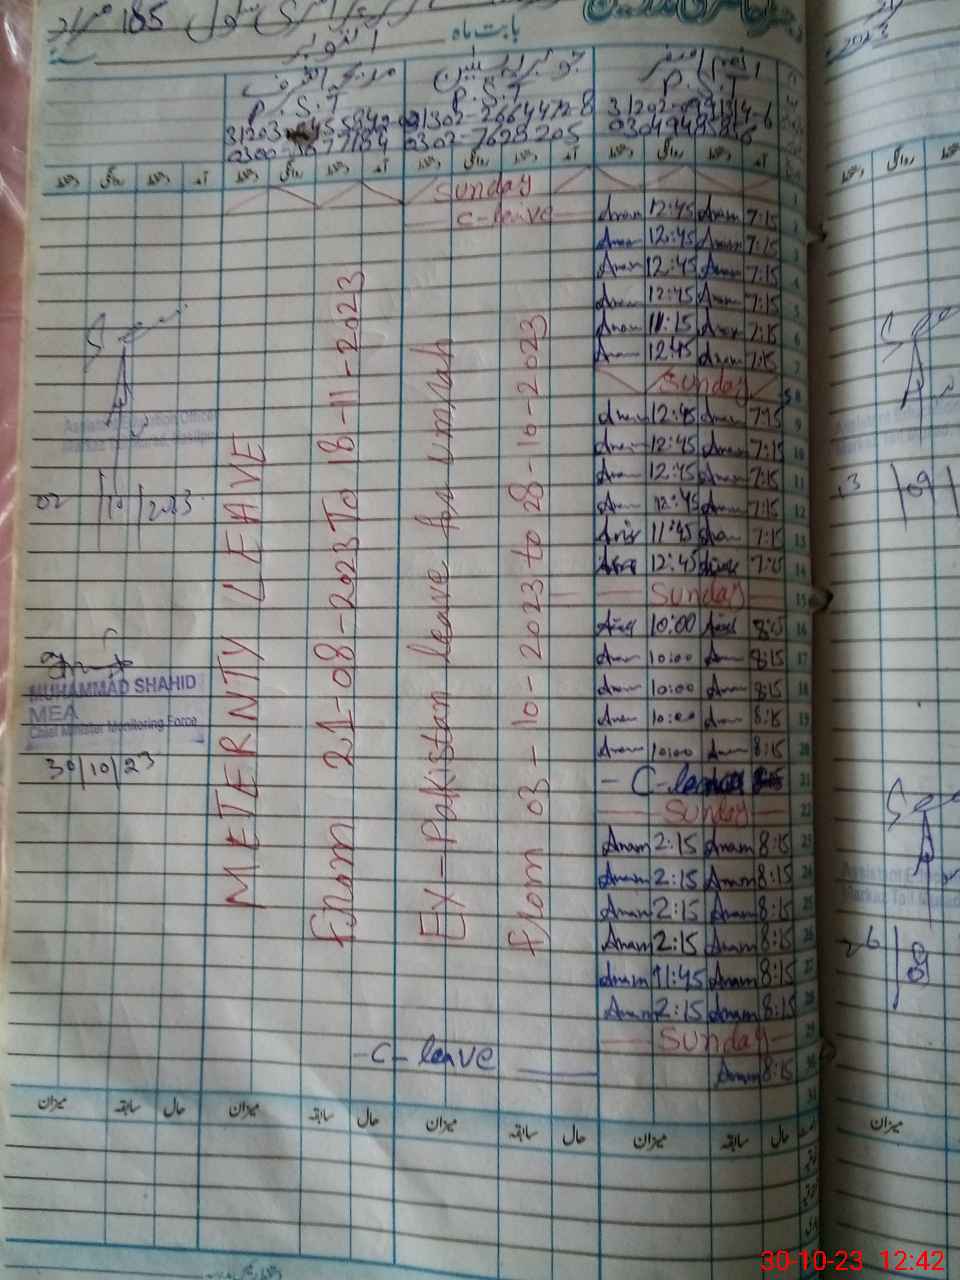 185
بابت ماہ اکتوبر
P.S.T
P.S.T
P.S.T
0302-7628205
آمد دستخط روانگی دستخط آمد دستخط روانگی دستخط آمد دستخط روانگی دستخط آمد دستخط روانگی دستخط
1 Sunday
2 7:15 Anam 12:45 Anam C-leave
3 7:15 Anam 12:45 Anam
4 7:15 Anam 12:45 Anam
5 7:15 Anam 12:45 Anam
6 7:15 Anam 11:15 Anam
7 7:15 Anam 12:45 Anam
8 Sunday
9 7:15 Anam 12:45 Anam
10 7:15 Anam 12:45 Anam
11 7:15 Anam 12:45 Anam
12 7:15 Anam 12:45 Anam
13 7:15 11:45
14 7:15 12:45
15 Sunday
16 8:15 10:00
17 8:15 Anam 10:00 Anam
18 8:15 Anam 10:00 Anam
19 8:15 Anam 10:00 Anam
20 8:15 Anam 10:00 Anam
21 - C-leave
22 Sunday
23 8:15 Anam 2:15 Anam
24 8:15 Anam 2:15 Anam
25 8:15 Anam 2:15 Anam
26 8:15 Anam 2:15 Anam
27 8:15 Anam 11:45 Anam
28 8:15 Anam 2:15 Anam
29 Sunday
30 8:15 Anam - C-leave
31
Ex-Pakistan leave for Umrah
From 03-10-2023 to 28-10-2023
METERNTY LEAVE
From 21-08-2023 To 18-11-2023
Assistant Education Office
02/10/2023
MUHAMMAD SHAHID
MEA
Chief Minister Monitoring Force
30/10/23
حال سابقہ میزان حال سابقہ میزان حال سابقہ میزان حال سابقہ میزان
دستخط
13/09
Assistant Education
26/09
میزان
30-10-23 12:42